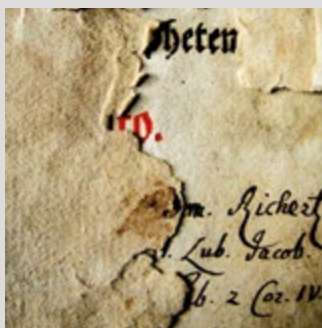 heten
ro.
Richert
Lub. Jacob.
2 Cor. IV.